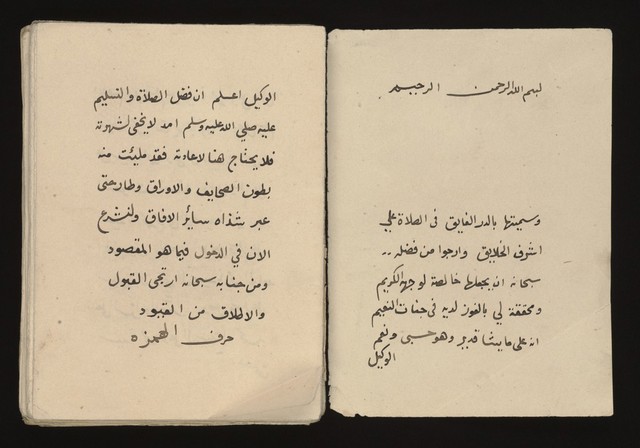 بسم الله الرحمن الرحيم
وسميتها بالدر الفايق في الصلاة علي
اشرف الخلايق وارجوا من فضله
سبحانه ان يجعلها خالصة لوجهه الكريم
ومحققة لي بالفوز لديه في جنات النعيم
انه على ما يشا قدير وهو حسبي ونعم
الوكيل
الوكيل اعلم ان فضل الصلاة والتسليم
عليه صلي الله عليه وسلم امر لا يخفى لشهرته
فلا يحتاج هنا لاعادته فقد مليئت منه
بطون الصحايف والاوراق وطار حتى
عبر شذاه سائر الافاق ولنشرع
الان في الدخول فيما هو المقصود
ومن جنابه سبحانه ارتجى القبول
والاطلاق من القيود
حرف الهمزه